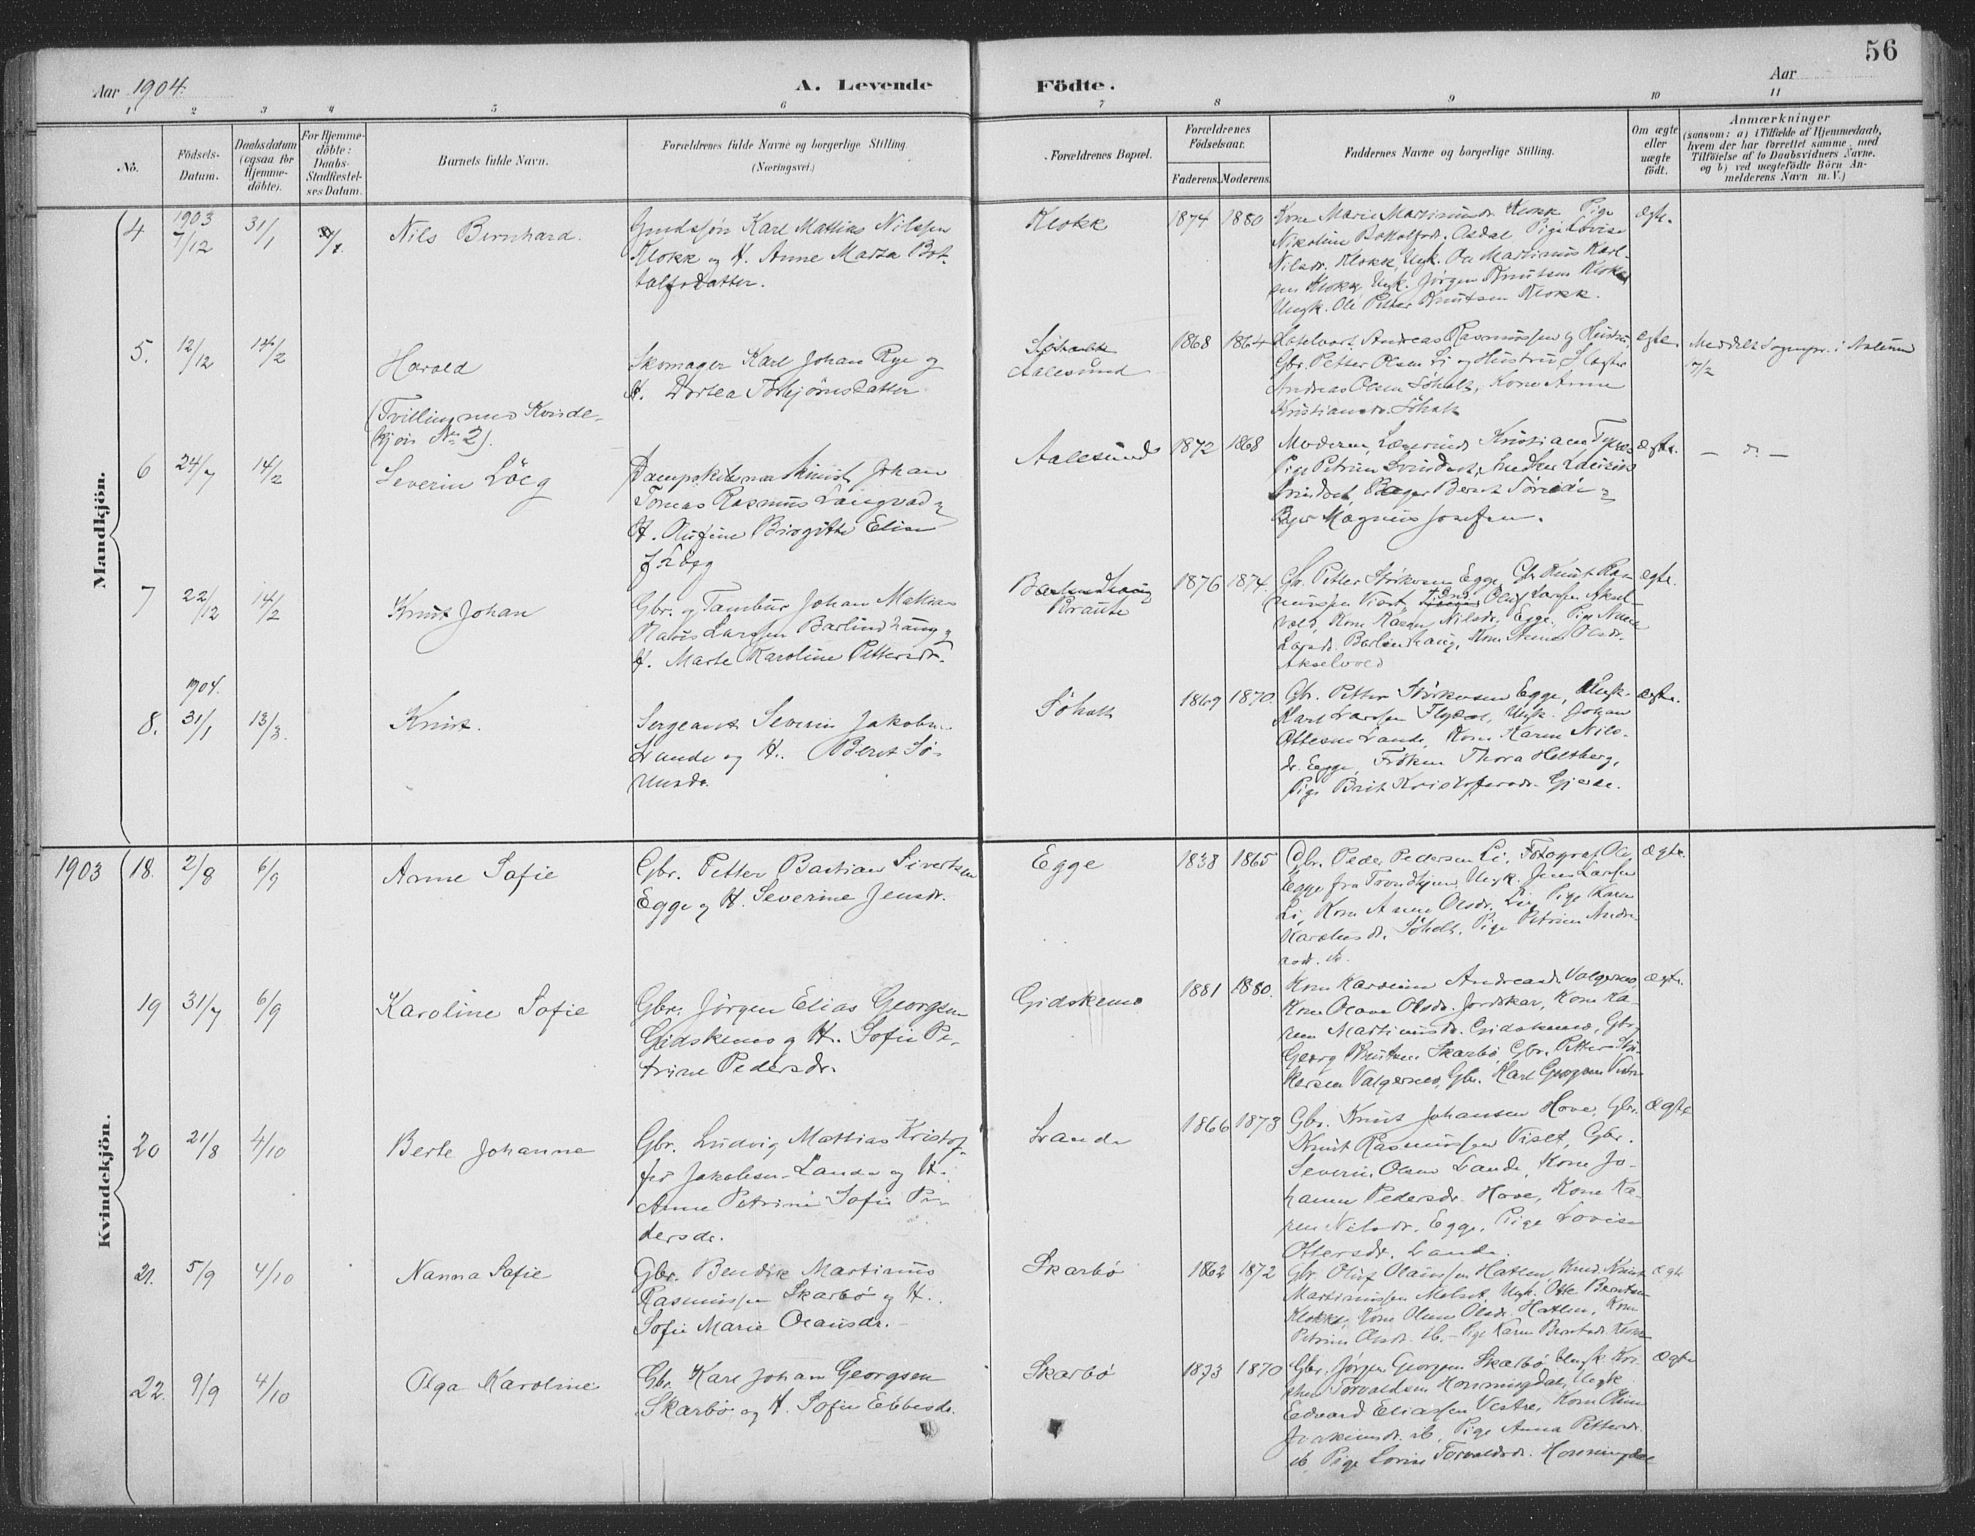 56
Aar 1904.
A. Levende
Födte.
Aar
1 2 3 4 5 6 7 8 9 10 11
No.
Födsels-Datum.
Daabsdatum (ogsaa for Hjemmedöbte).
For Hjemmedöbte: Daabs-Stadfæstelses Datum.
Barnets fulde Navn.
Forældrenes fulde Navne og borgerlige Stilling.
(Næringsvei.)
Forældrenes Bopæl.
Forældrenes Födselsaar.
Faderens. Moderens.
Faddernes Navne og borgerlige Stilling.
Om ægte eller uægte födt.
Anmærkninger
(saasom: a) i Tilfælde af Hjemmedaab,
hvem der har forrettet samme, med
Tilföielse af to Daabsvidners Navne.
og b) ved uægtefödte Börn An-
melderens Navn m. V.)
Mandkjön.
4 1903 7/12 31/1
Nils Bernhard.
Gmdssøn Karl Mattias Nilssen
Klokk og H. Anne Marta Bot-
talfsdatter.
Klokk 1874 1880
Kone Marie Martinusdr. Klokk, Pige
Nikoline Osdal, Pige Lovise
Nilsdr. Klokk, Ungk. Ole Martinius Karl-
sen Klokk, Ungk. Jørgen Knutsen Klokk
Ungk. Ole Petter Knutsen Klokk.
ægte.
5. 12/12 14/2
Harald
(Tvilling med Kvinde-
kjön No 2).
Skomager Karl Johan Rye og
H. Dortea Torbjørnsdatter
Søholt
Aalesund
1868 1864
Andreas Rasmussen og Hustru,
Gbr. Petter Olsen Li og Hustru,
Andreas Olsen Søholt, Kone Anne
Kristiansdr. Søholt
ægte.
Meddelt Sognepr. i Aalesund
17/2
6 24/7 14/2
Severin Löeg
Dampskibsmaskinist Johan
Tomas Rasmus Langvad og
H. Olufine Birgitte Elise
f. Löeg
Aalesund 1872 1868
Moderen, Kristiane
Pige Petrine
Bager Bernt
Magnus Josefsen.
ægte.
— d. —
7 22/12 14/2
Knut Johan
Gbr. og Tambur Johan Matias
Larsen Barlindhaug og
H. Marte Karoline Pettersdr.
Barlindhaug
1876 1874.
Gbr. Petter Størkersen Egge, Gbr. Knut Ras-
mussen Viset, Oluf Larsen Aksel-
vold, Kone Karen Nilsdr. Egge, Pige Anne
Larsdr. Barlindhaug, Kone Olsdr.
Akselvold
ægte.
8. 1904. 31/1 13/3.
Knut.
Sergeant Severin Jakobsen
Lande og H. Beret Sø-
rensdr.
Søholt 1869 1870.
Gbr. Petter Størkersen Egge, Ungk.
Karl Larsen Ungk. Johan
Ottesen Lande, Kone Karen Nils-
dr. Egge, Frøken Thora Holtberg,
Pige Brit Kristoffersdr. Gjerde.
ægte.
Kvindekjön.
1903 18. 2/8 6/9
Anne Sofie
Gbr. Petter Bastian Sivertsen
Egge og H. Severine Jensdr.
Egge 1838 1865
Gbr. Peder Pedersen Li, Fotograf Ole
Egge fra Trondhjem, Ungk. Jens Larsen
Li, Kone Anne Olsdr. Li, Pige Karen
Karolusdr. Søholt, Pige Petrine Andre-
asdr. ib.
ægte.
19 31/7 6/9
Karoline Sofie
Gbr. Jørgen Elias Georgsen
Gidskemo og H. Sofie Pe-
trine Pedersdr.
Gidskemo 1881 1880.
Kone Karoline Andreasdr. Valgernes,
Kone Olave Olsdr. Jordskar, Kone Ka-
ren Martinusdr. Gidskemo, Gbr.
Georg Knutsen Skarbø, Gbr. Petter Stør-
kersen Valgernes, Gbr. Karl Georgsen Vestre
ægte.
20 21/8 4/10
Berte Johanne
Gbr. Ludvig Mattias Kristof-
fer Jakobsen Lande og H.
Anne Petrine Sofie Pe-
dersdr.
Lande 1866 1873
Gbr. Knut Johansen Hove, Gbr.
Knut Rasmussen Viset, Gbr.
Severin Olsen Lande, Kone Jo-
hanne Pedersdr. Hove, Kone Ka-
ren Nilsdr. Egge, Pige Lovise
Ottersdr. Lande.
ægte
21. 5/9 4/10
Nanna Sofie
Gbr. Bendik Martinus
Rasmussen Skarbø og H.
Sofie Marie Olausdr.
Skarbø 1862 1872
Gbr. Oluf Olaussen Hatlen, Knut
Martinussen Melset, Ungk. Otte Berntsen
Klokk, Kone Oline Olsdr. Hatlen, Kone
Petrine Olsdr. ib. – Pige Karen Berntsdr. Klokk
ægte
22. 9/9 4/10
Olga Karoline
Gbr. Karl Johan Georgsen
Skarbø og H. Sofie Ebbesdr.
Skarbø 1873 1870
Gbr. Jørgen Georgsen Skarbø, Ungk. Kri-
Torvaldsen Honningdal, Ungk.
Edvard Eliassen Vestre, Kone Oline
Joakimsdr. ib, Pige Anna Pettersdr.
ib, Pige Lovise Torvaldsdr. Honningdal
ægte